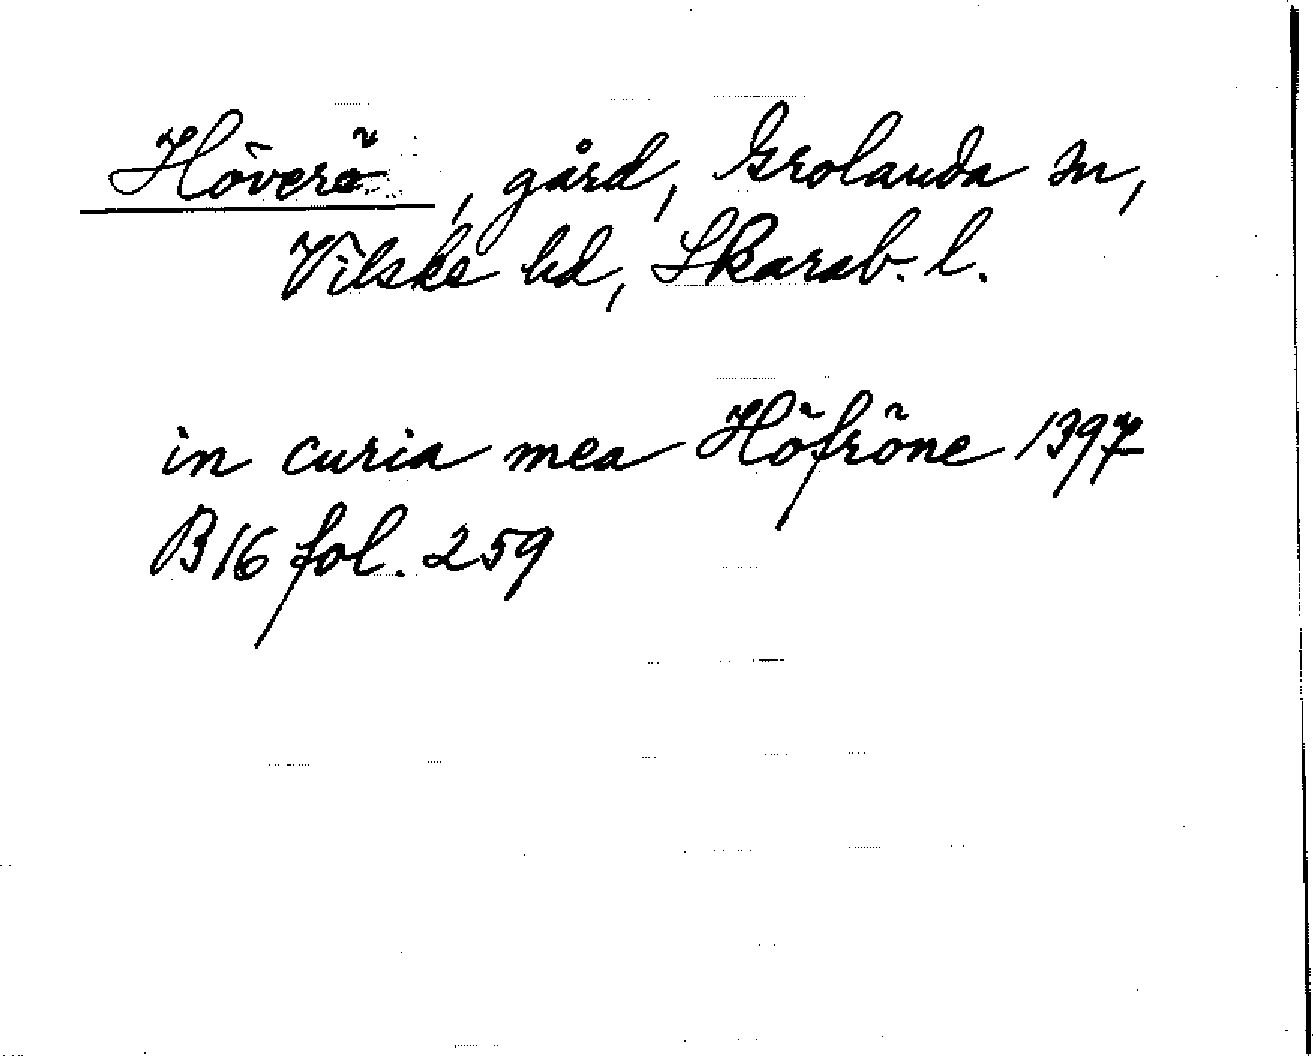 Höverö, gård, Grolanda sn,
Vilske hd, Skarab. l.
in curia mea Höfröne 1397
B16 fol. 259